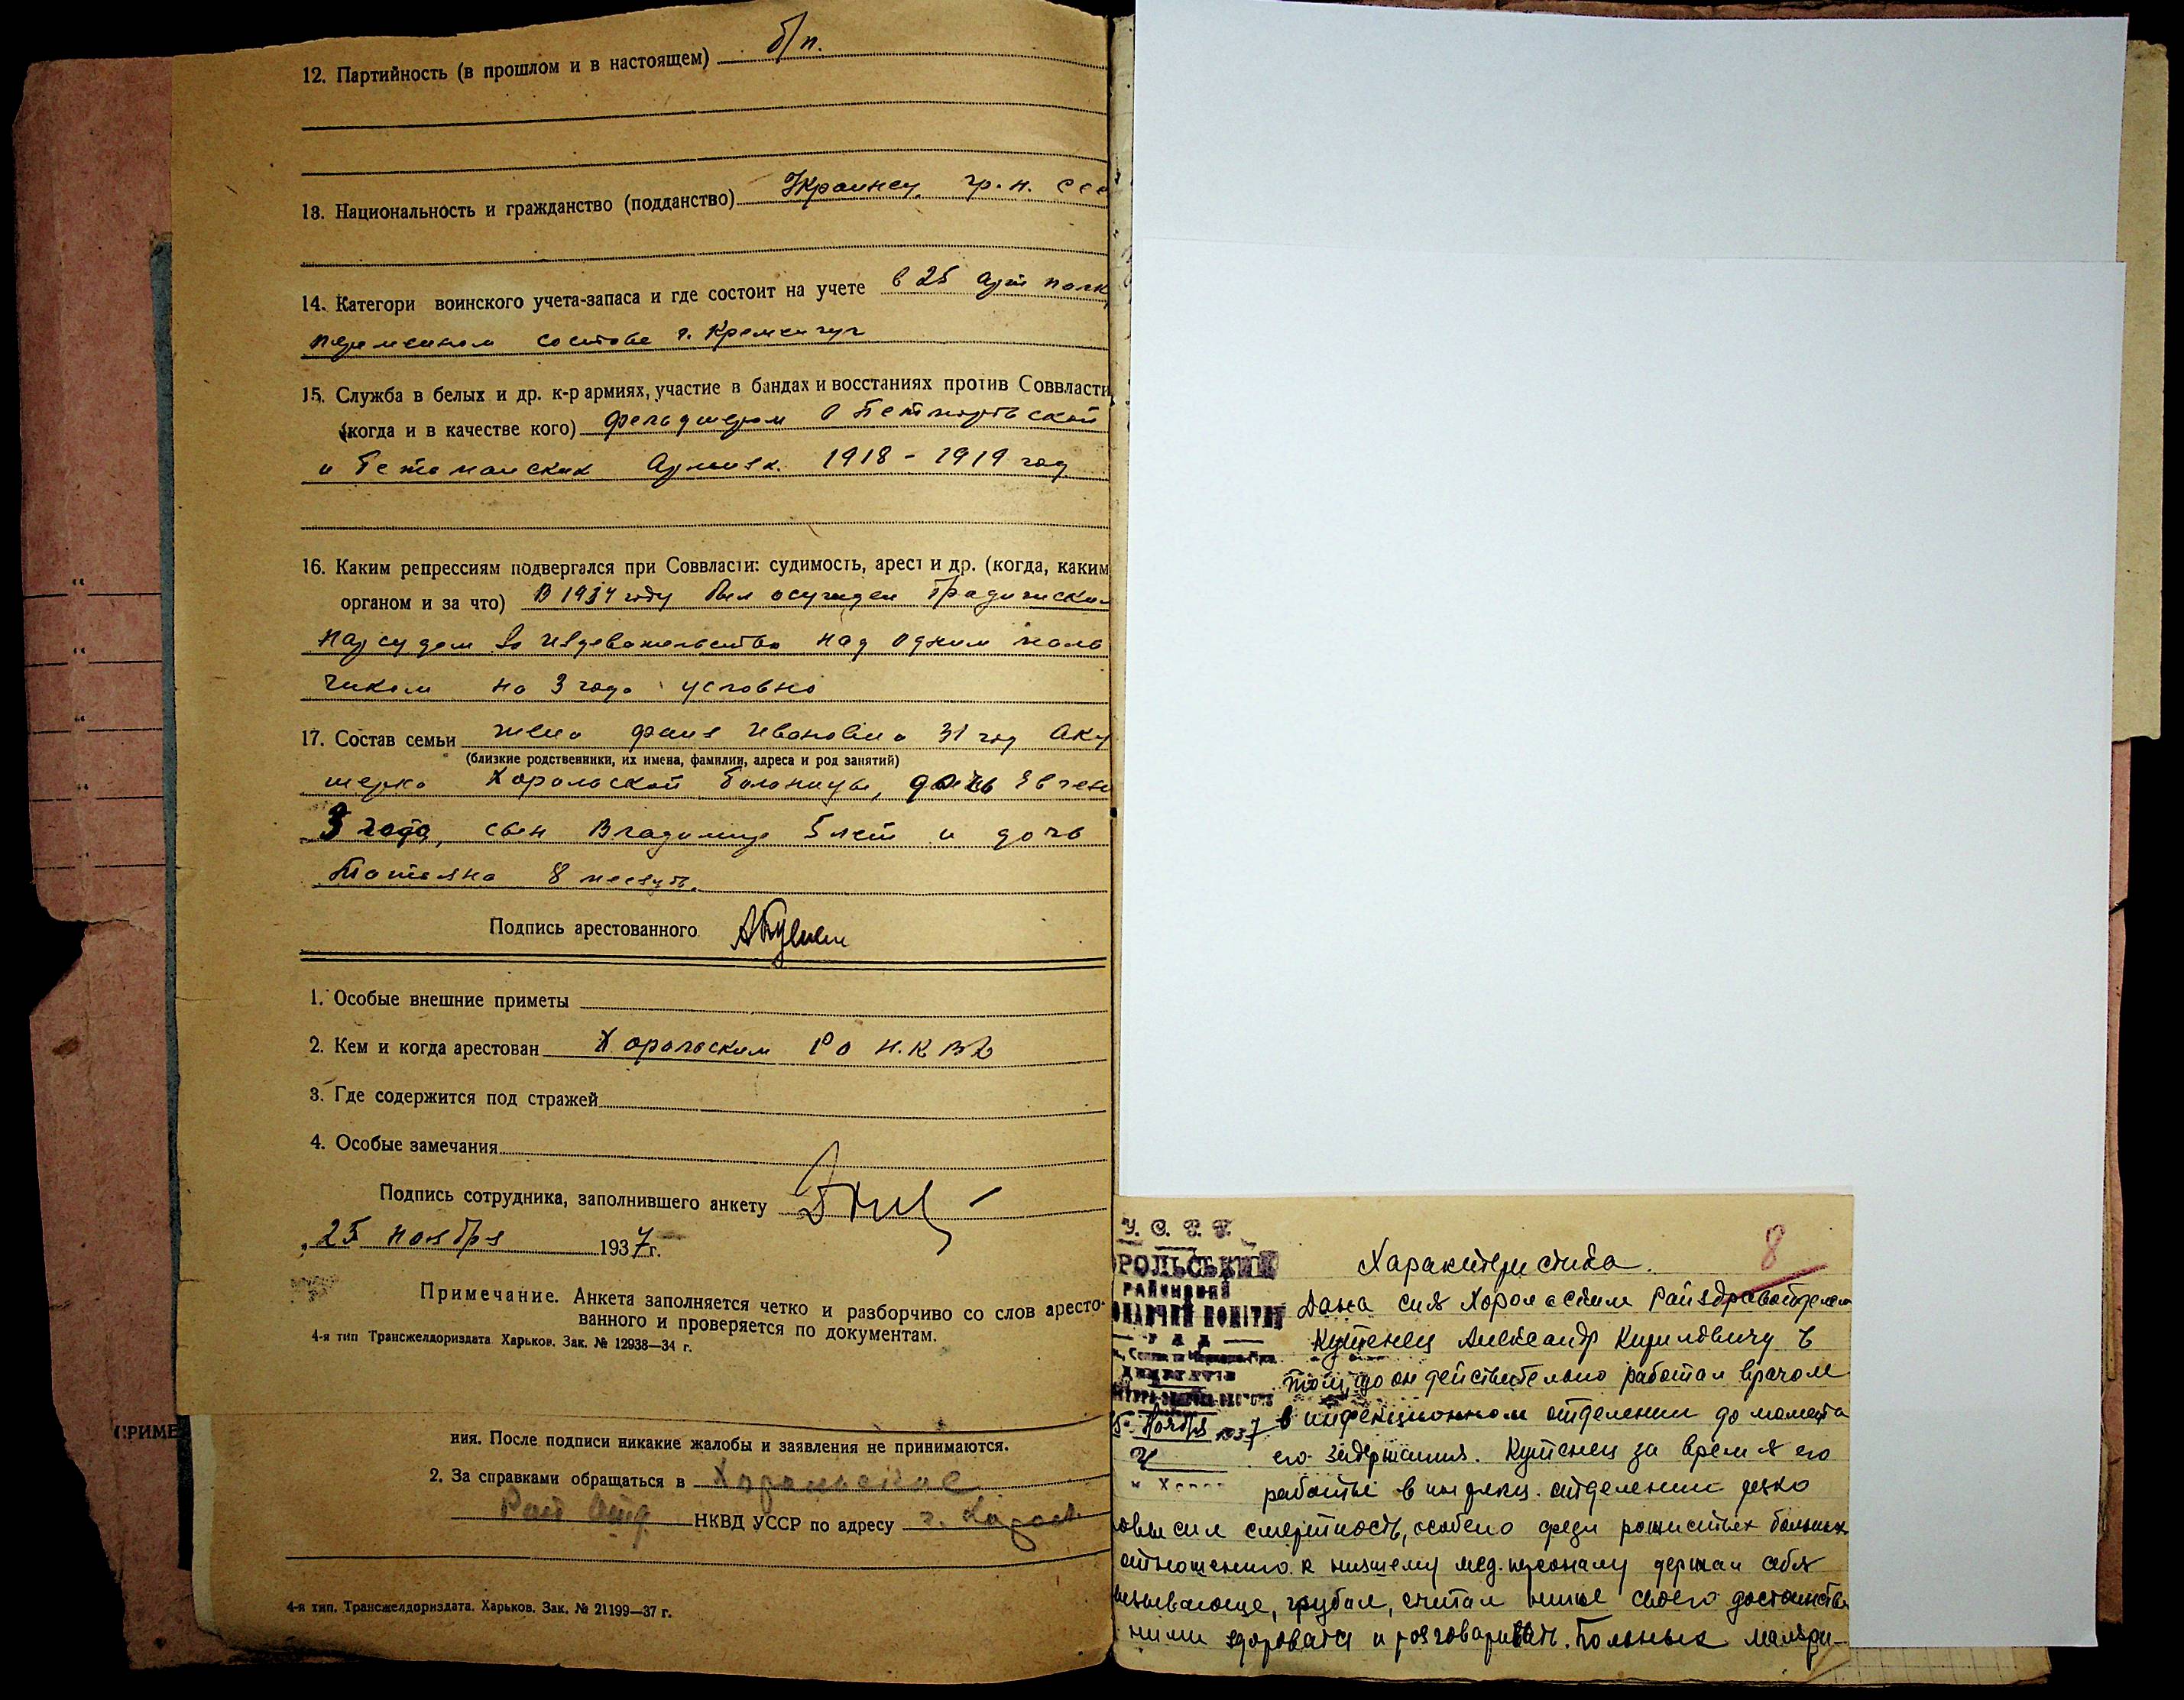 12. Партийность (в прошлом и в настоящем) б/п.
13. Национальность и гражданство (подданство) Украинец, гр.н. ссс
14. Категори воинского учета-запаса и где состоит на учете в 25 арт полк
переменном составе г. Кременчуг
15. Служба в белых и др. к-р армиях, участие в бандах и восстаниях против Соввласти
(когда и в качестве кого) фельдшером в Петлюровской
и Гетманских Армиях. 1918 - 1919 год
16. Каким репрессиям подвергался при Соввласти: судимость, арест и др. (когда, каким
органом и за что) В 1934 году был осужден Градижским
нарсудом за издевательство над одним маль
чиком на 3 года условно
17. Состав семьи жена Ивановна 31 год Аку
(близкие родственники, их имена, фамилии, адреса и род занятий)
шерка Хорольской больницы, дочь Евген
3 года, сын Владимир 5 лет и дочь
Татьяна 8 месяц.
Подпись арестованного
1. Особые внешние приметы
2. Кем и когда арестован Хорольским РО Н.К.ВД
3. Где содержится под стражей
4. Особые замечания
Подпись сотрудника, заполнившего анкету
25 ноября 1937 г.
Примечание. Анкета заполняется четко и разборчиво со слов аресто-
ванного и проверяется по документам.
4-я тип Трансжелдориздата Харьков. Зак. № 12938—34 г.
(ПРИМЕ
ния. После подписи никакие жалобы и заявления не принимаются.
2. За справками обращаться в Хорольское
Рай отд НКВД УССР по адресу г. Хорол
4-я тип. Трансжелдориздата. Харьков. Зак. № 21199—37 г.
У. С. Р. Р.
РОЛЬСЬКИЙ
РАЙОННИЙ
ОНАВЧИЙ КОМІТЕТ
Ноября 1937
8
Характеристика.
Дана сия Хорольским Райздравотделом
Кутенец Александр Кириловичу в
том, що он действительно работал врачом
в инфекционном отделении до момента
его задержания. Кутенец за время его
работы в инфекц. отделении резко
овысил смертность, особено среди рожистых больных
отношению к низшему мед. персоналу держал себя
вызывающе, грубил, считал ниже своего достоинства
ними здороватся и розговаривать. Больных маляри-